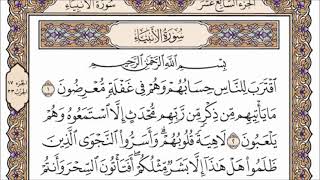 سُورَةُ الأَنبِيَاءِ
الجزء السابع عشر
سُورَةُ الأَنبِيَاءِ
بِسْمِ اللَّهِ الرَّحْمَٰنِ الرَّحِيمِ
اقْتَرَبَ لِلنَّاسِ حِسَابُهُمْ وَهُمْ فِي غَفْلَةٍ مُّعْرِضُونَ ١
مَا يَأْتِيهِم مِّن ذِكْرٍ مِّن رَّبِّهِم مُّحْدَثٍ إِلَّا اسْتَمَعُوهُ وَهُمْ
يَلْعَبُونَ ٢ لَاهِيَةً قُلُوبُهُمْ وَأَسَرُّوا النَّجْوَى الَّذِينَ
ظَلَمُوا هَلْ هَٰذَا إِلَّا بَشَرٌ مِّثْلُكُمْ أَفَتَأْتُونَ السِّحْرَ وَأَنتُمْ
الجزء ١٧